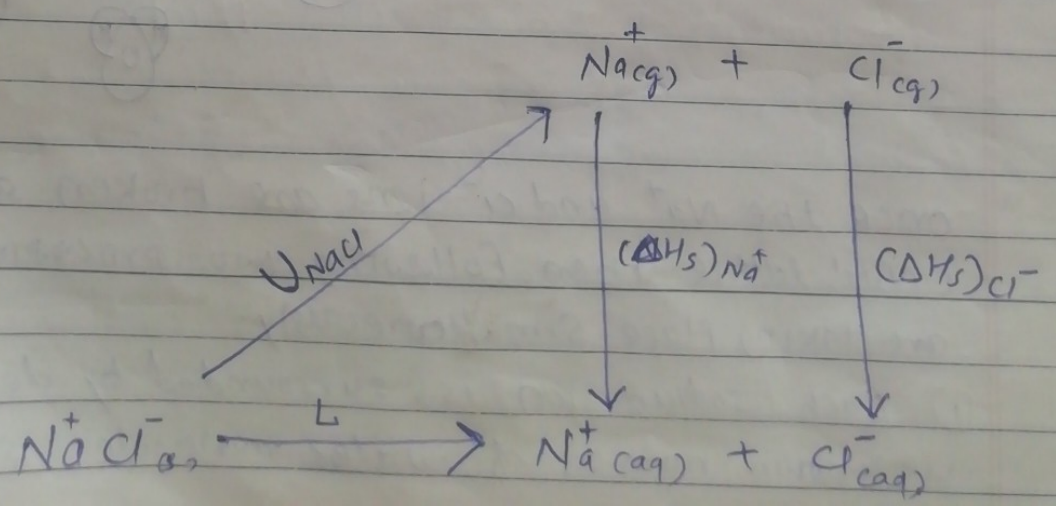 Na⁺(g) + Cl⁻(g)
U NaCl (ΔHs) Na⁺ (ΔHs) Cl⁻
L
Na⁺Cl⁻(s) Na⁺(aq) + Cl⁻(aq)